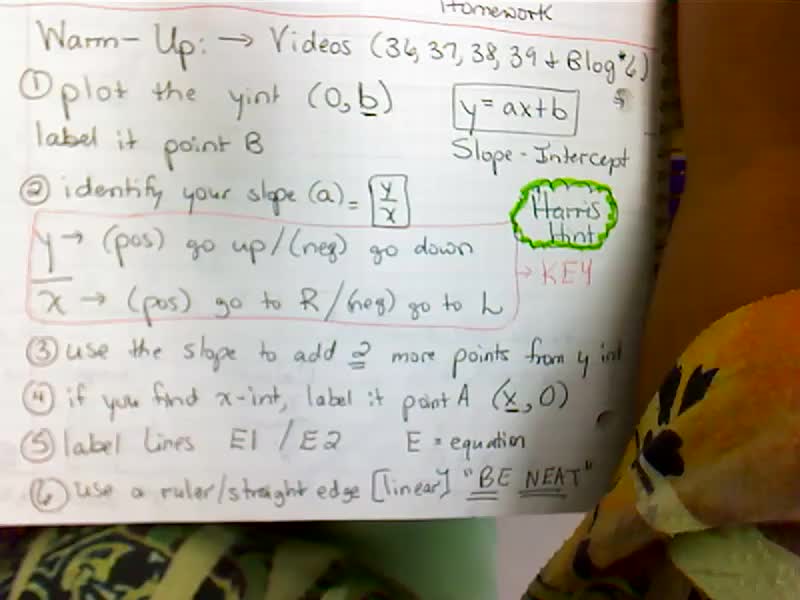 Homework
Warm-Up: → Videos (36, 37, 38, 39 + Blog #6)
① plot the yint (0, b)
y = ax+b
label it point B
Slope-Intercept
② identify your slope (a) = y/x
Harris
Hint
y → (pos) go up/(neg) go down
→ KEY
x → (pos) go to R/(neg) go to L
③ use the slope to add 2 more points from y int
④ if you find x-int, label it point A (x, 0)
⑤ label lines E1 / E2 E = equation
⑥ use a ruler/straight edge [linear] "BE NEAT"